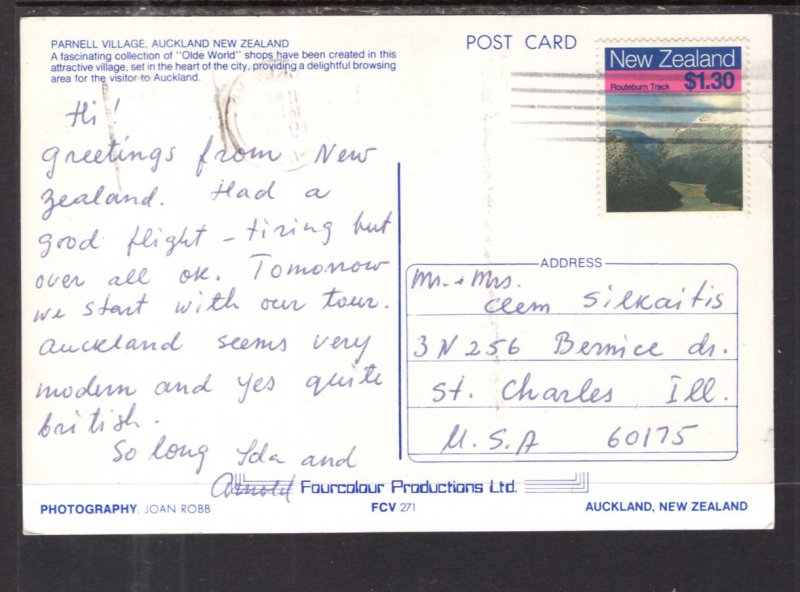 PARNELL VILLAGE, AUCKLAND NEW ZEALAND
A fascinating collection of "Olde World" shops have been created in this
attractive village, set in the heart of the city, providing a delightful browsing
area for the visitor to Auckland.
POST CARD
New Zealand
Routeburn Track $1.30
Hi!
Greetings from New
Zealand. Had a
good flight – tiring but
over all OK. Tomorrow
we start with our tour.
Auckland seems very
modern and yes quite
british.
So long Ida and
Arnold
ADDRESS
Mr. & Mrs.
Clem Silkaitis
3N256 Bernice dr.
St. Charles Ill.
U.S.A 60175
Fourcolour Productions Ltd.
PHOTOGRAPHY: JOAN ROBB
FCV 271
AUCKLAND, NEW ZEALAND